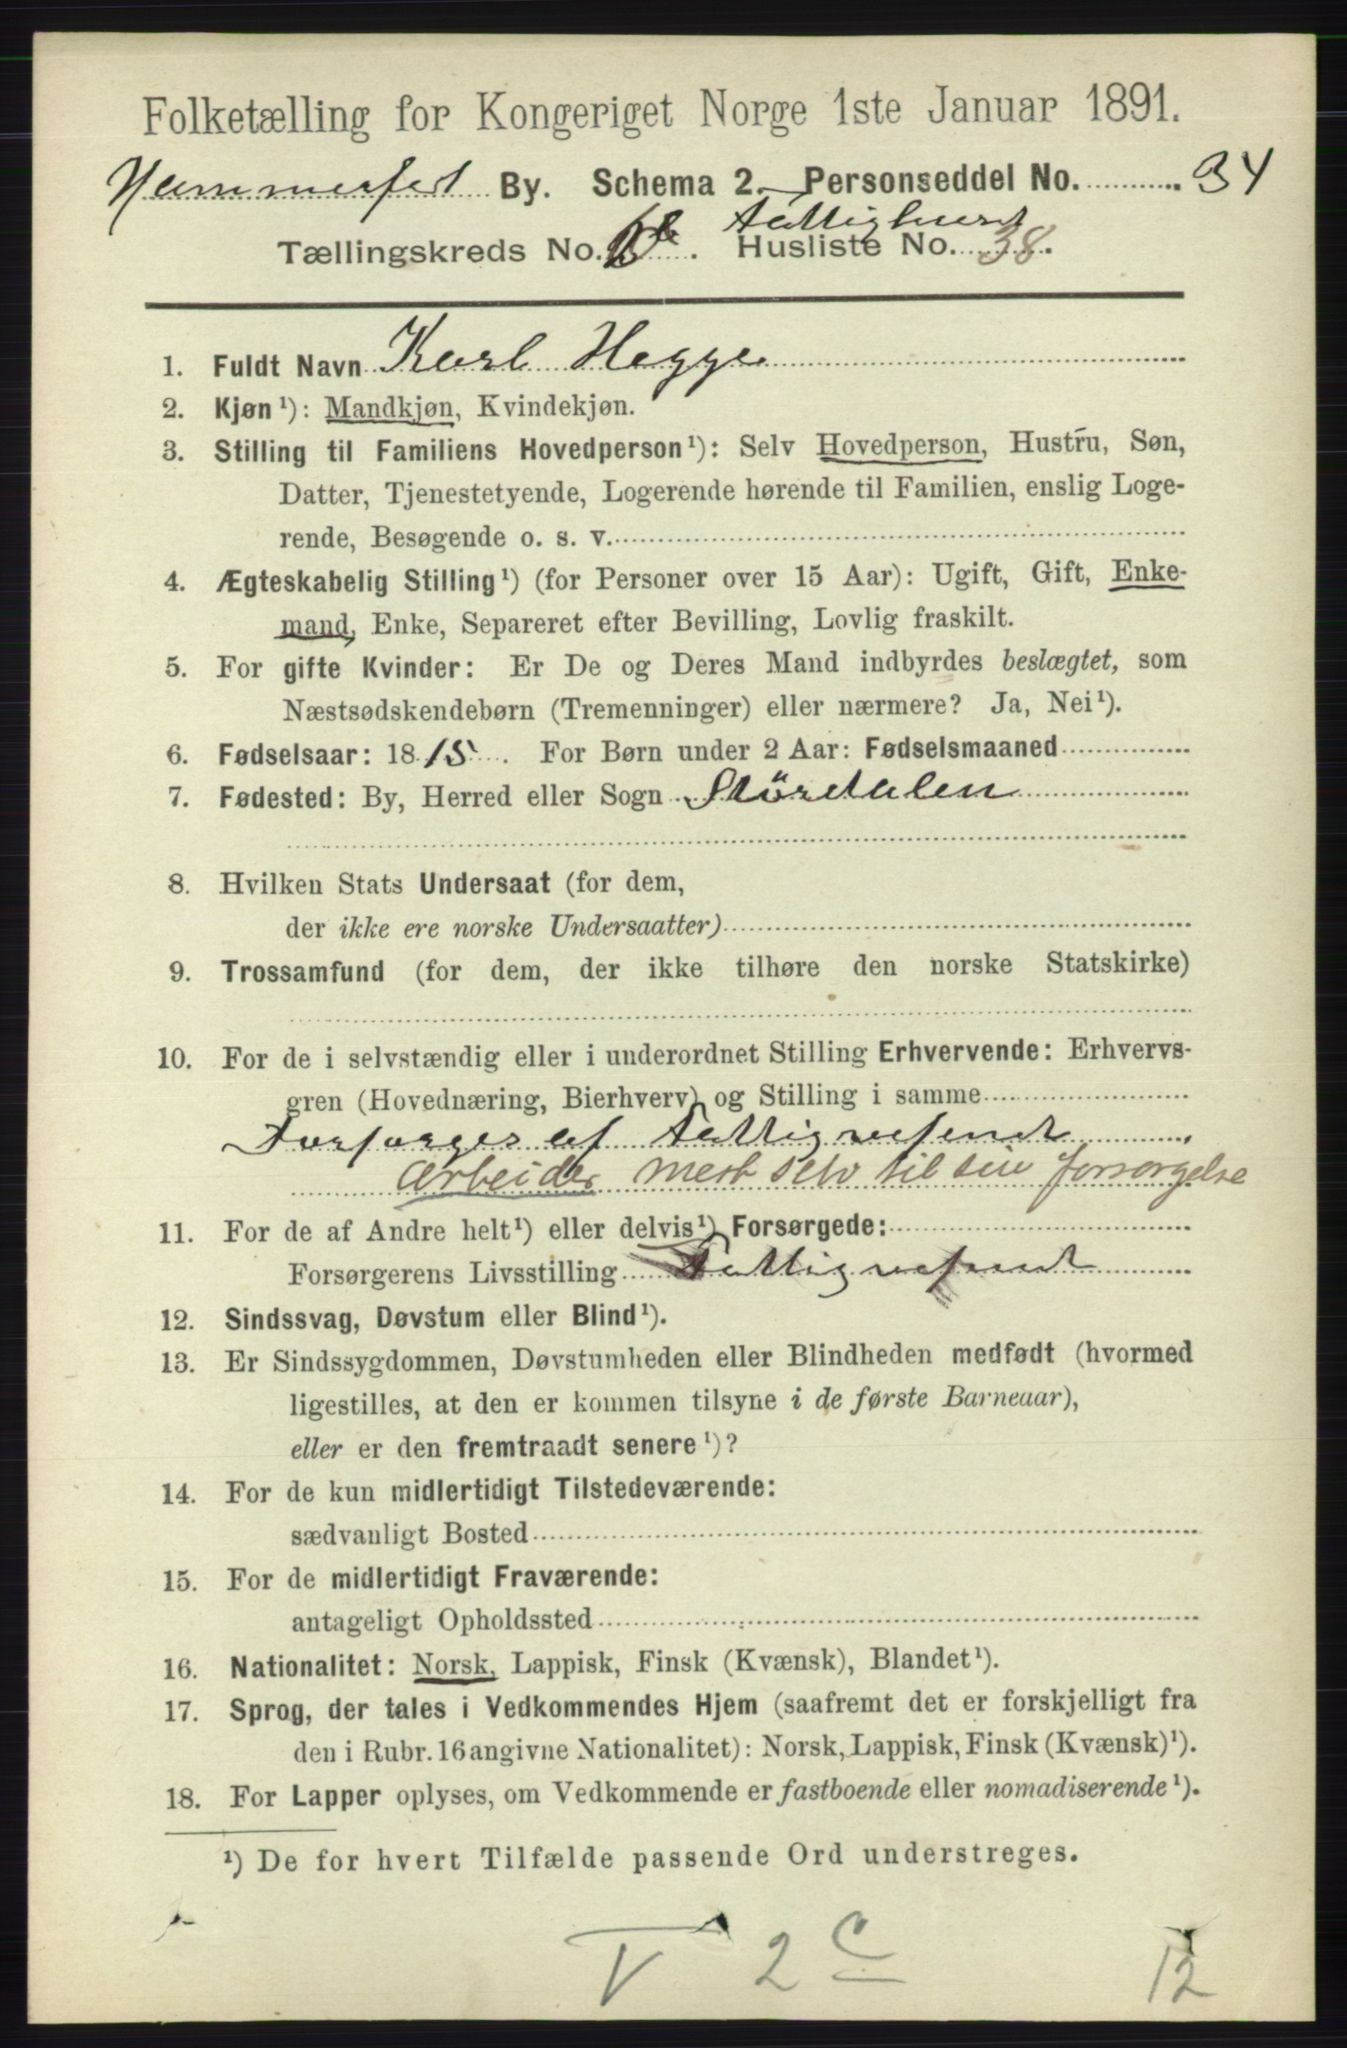 Folketælling for Kongeriget Norge 1ste Januar 1891.
Hammerfest By. Schema 2. Personseddel No. 34
Fattighuset
Tællingskreds No. Husliste No. 38.
1. Fuldt Navn Karl Hegge
2. Kjøn¹): Mandkjøn, Kvindekjøn.
3. Stilling til Familiens Hovedperson¹): Selv Hovedperson, Hustru, Søn,
Datter, Tjenestetyende, Logerende hørende til Familien, enslig Loge-
rende, Besøgende o. s. v.
4. Ægteskabelig Stilling¹) (for Personer over 15 Aar): Ugift, Gift, Enke-
mand, Enke, Separeret efter Bevilling, Lovlig fraskilt.
5. For gifte Kvinder: Er De og Deres Mand indbyrdes beslægtet, som
Næstsødskendebørn (Tremenninger) eller nærmere? Ja, Nei¹).
6. Fødselsaar: 1815. For Børn under 2 Aar: Fødselsmaaned
7. Fødested: By, Herred eller Sogn Størdalen
8. Hvilken Stats Undersaat (for dem,
der ikke ere norske Undersaatter)
9. Trossamfund (for dem, der ikke tilhøre den norske Statskirke)
10. For de i selvstændig eller i underordnet Stilling Erhvervende: Erhvervs-
gren (Hovednæring, Bierhverv) og Stilling i samme
Forsørges af Fattigvæsenet
arbeider mest selv til sin forsørgelse
11. For de af Andre helt¹) eller delvis¹) Forsørgede:
Forsørgerens Livsstilling Fattigvæsenet
12. Sindssvag, Døvstum eller Blind¹).
13. Er Sindssygdommen, Døvstumheden eller Blindheden medfødt (hvormed
ligestilles, at den er kommen tilsyne i de første Barneaar),
eller er den fremtraadt senere¹)?
14. For de kun midlertidigt Tilstedeværende:
sædvanligt Bosted
15. For de midlertidigt Fraværende:
antageligt Opholdssted
16. Nationalitet: Norsk, Lappisk, Finsk (Kvænsk), Blandet¹).
17. Sprog, der tales i Vedkommendes Hjem (saafremt det er forskjelligt fra
den i Rubr. 16 angivne Nationalitet): Norsk, Lappisk, Finsk (Kvænsk)¹).
18. For Lapper oplyses, om Vedkommende er fastboende eller nomadiserende¹).
¹) De for hvert Tilfælde passende Ord understreges.
V 2 c 12